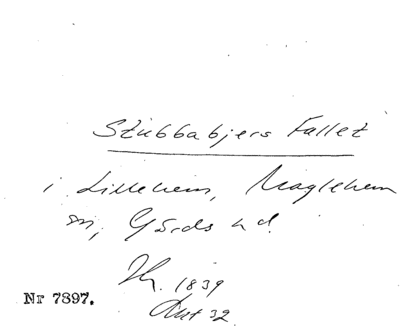 Stubbabjers Fallet
i Lillehem, Maglehem
sn, Gärds hd.
1839
Nr 7897.
32